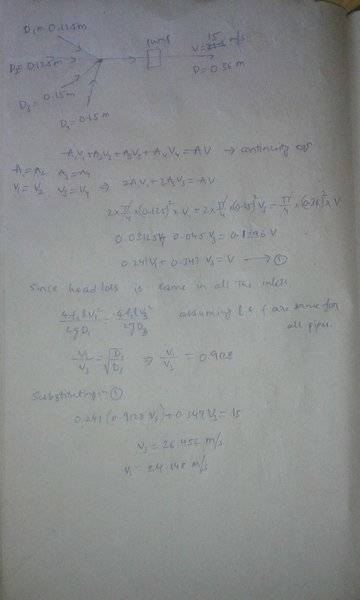 D₁ = 0.125m
pump
15
V = m/s
D₂ = 0.125m
D = 0.36m
D₃ = 0.15m
D₄ = 0.15m
A₁V₁ + A₂V₂ + A₃V₃ + A₄V₄ = AV → continuity eqn
A₁ = A₂ A₃ = A₄
V₁ = V₂ V₃ = V₄ ⇒ 2A₁V₁ + 2A₃V₃ = AV
2 × π/4 × (0.125)² × V₁ + 2 × π/4 × (0.15)² V₃ = π/4 × (0.36)² × V
0.03125V₁ 0.045 V₃ = 0.1296 V
0.241V₁ + 0.347 V₃ = V → ①
Since head loss is same in all the inlets
4f₁lV₁²/2gD₁ = 4f₃lV₃²/2gD₃ assuming l & f are same for
all pipes.
V₁/V₃ = √D₁/D₃ ⇒ V₁/V₃ = 0.9128
Substituting in ①
0.241 (0.9128 V₃) + 0.347V₃ = 15
V₃ = 26.456 m/s
V₁ = 24.148 m/s